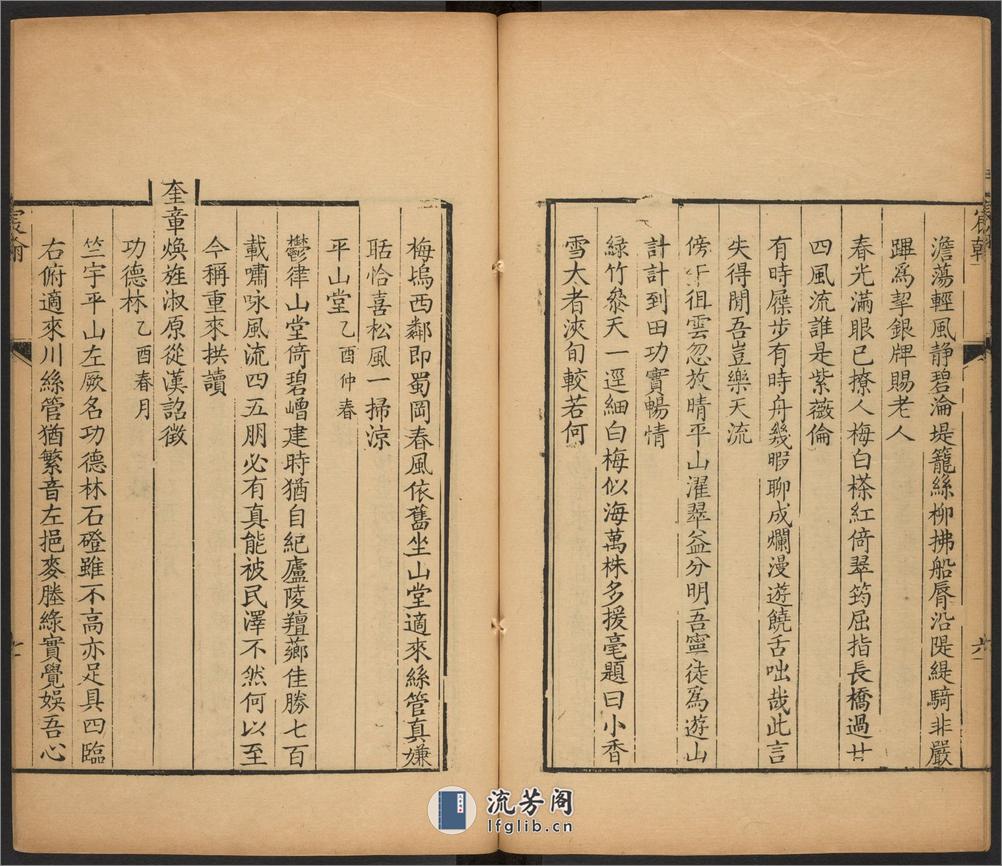 宸翰
六
澹蕩輕風静碧淪堤籠絲柳拂船脣沿隄緹騎非嚴
蹕爲挈銀牌賜老人
春光滿眼已撩人梅白楺紅倚翠筠屈指長橋過廿
四風流誰是紫薇倫
有時屧步有時舟幾暇聊成爛漫遊饒舌咄哉此言
失得閒吾豈樂天流
傍午徂雲忽放晴平山濯翠益分明吾寧徒爲遊山
計計到田功實暢情
綠竹叅天一逕細白梅似海萬株多援毫題曰小香
雪太者浹旬較若何
梅塢西鄰即蜀岡春風依舊坐山堂適來絲管真嫌
聒恰喜松風一掃涼
平山堂 乙酉仲春
鬱律山堂倚碧嶒建時猶自紀廬陵羶薌佳勝七百
載嘯咏風流四五朋必有真能被民澤不然何以至
今稱重來拱讀
奎章煥旌淑原從漢詔徵
功德林 乙酉春月
竺宇平山左厥名功德林石磴雖不高亦足具四臨
右俯適來川絲管猶繁音左挹麥塍綠實覺娛吾心
宸翰
七
流芳阁
lfglib.cn